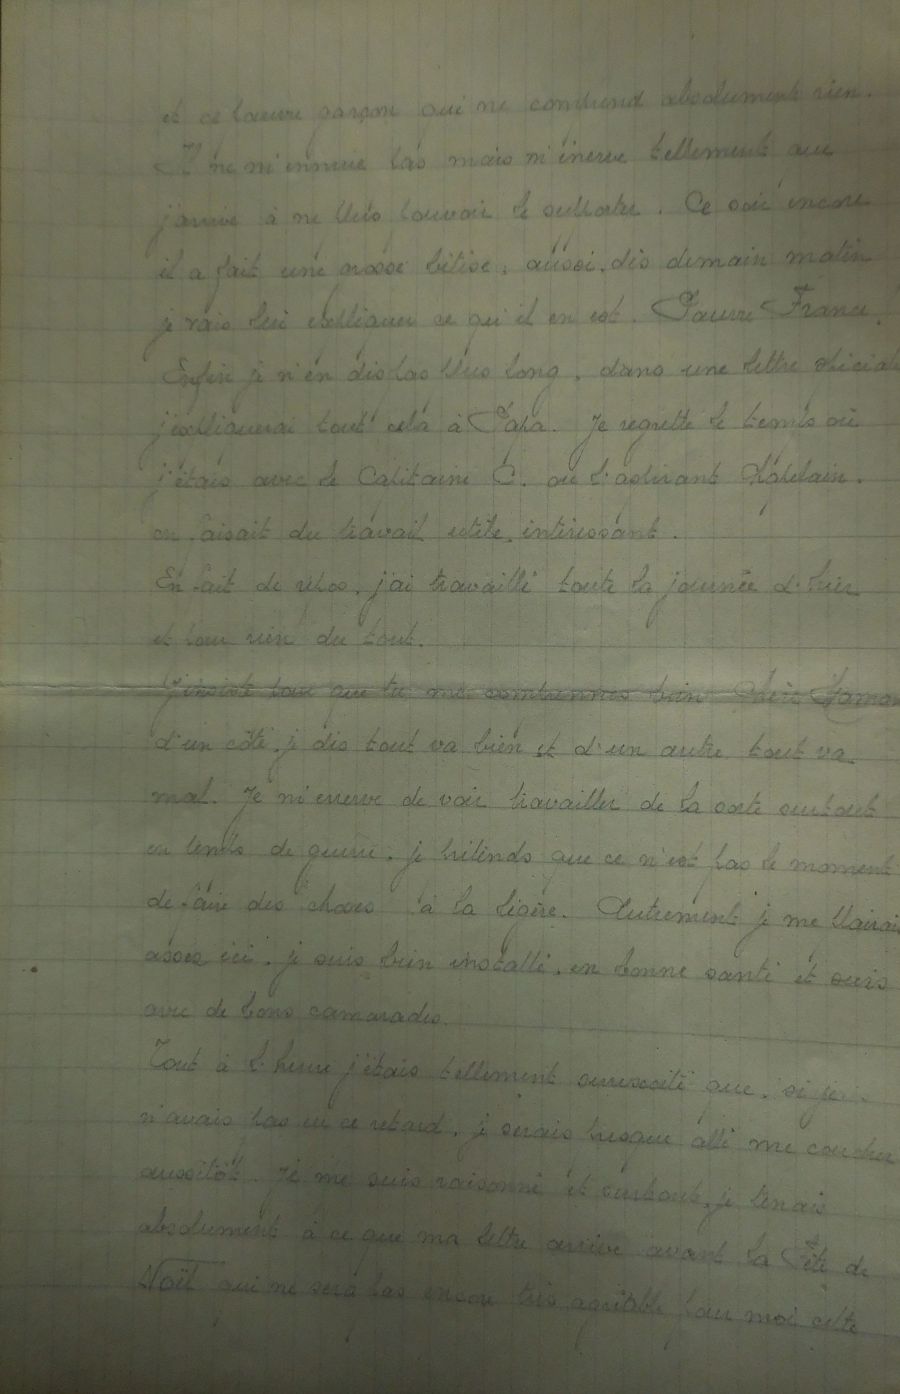 et ce pauvre garçon qui ne comprend absolument rien.
Il ne m'ennuie pas mais m'énerve tellement que
j'arrive à ne plus pouvoir le supporter. Ce soir encore
il a fait une grosse bêtise, aussi, dès demain matin
je vais lui expliquer ce qu'il en est. Pauvre France.
Enfin je n'en dis pas plus long, dans une lettre spéciale
j'expliquerai tout cela à Papa. Je regrette le temps où
j'étais avec le Capitaine C. ou l'aspirant
on faisait du travail utile, intéressant.
En fait de repos, j'ai travaillé toute la journée d'hier
et pour rien du tout.
J'insiste pour que tu me comprennes bien Chère Maman
d'un côté, je dis tout va bien et d'un autre tout va
mal. Je m'énerve de voir travailler de la sorte surtout
en temps de guerre, je prétends que ce n'est pas le moment
de faire des choses à la légère. Autrement je me plairais
assez ici, je suis bien installé, en bonne santé et suis
avec de bons camarades.
Tout à l'heure j'étais tellement surexcité que, si je
n'avais pas eu ce retard, je serais presque allé me coucher
aussitôt. Je me suis raisonné et surtout, je tenais
absolument à ce que ma lettre arrive avant la Fête de
Noël qui ne sera pas encore très agréable pour moi cette